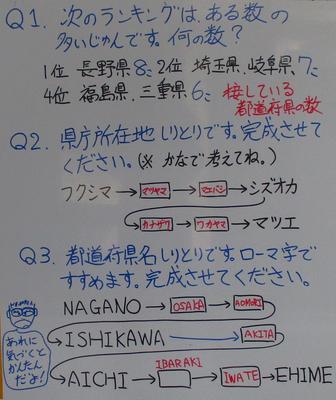 Q1. 次のランキングは、ある数の
多いじゅんです。何の数?
1位 長野県8こ 2位 埼玉県、岐阜県、7こ
4位 福島県、三重県6こ 接している
都道府県の数
Q2. 県庁所在地しりとりです。完成させて
ください。(※ かなで考えてね。)
フクシマ → マツヤマ → マエバシ → シズオカ
→ カナザワ → ワカヤマ → マツエ
Q3. 都道府県名しりとりです。ローマ字で
すすめます。完成させてください。
NAGANO → OSAKA → AOMORI
→ ISHIKAWA → AKITA
IBARAKI
→ AICHI → → IWATE → EHIME
あれに
気づくと
かんたん
だよ!